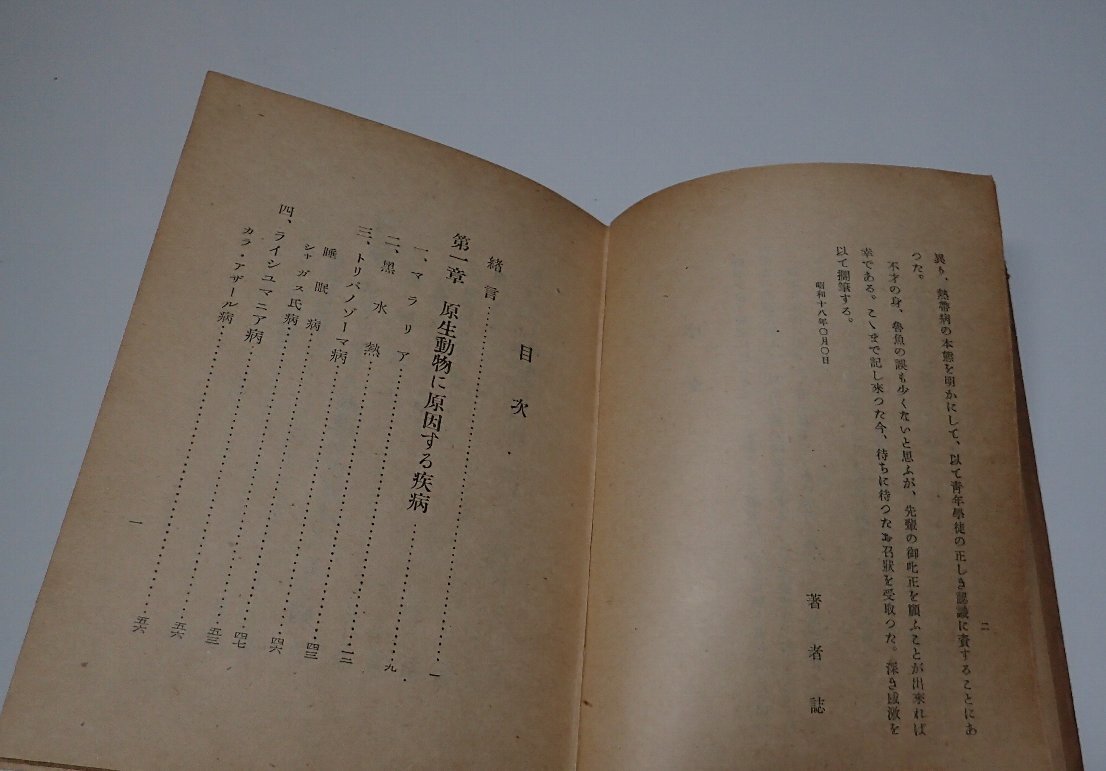 二
異り、熱帶病の本態を明かにして、以て靑年學徒の正しき認識に資することにあ
つた。
不才の身、魯魚の誤も少くないと思ふが、先輩の御叱正を願ふことが出來れば
幸である。こゝまで記し來つた今、待ちに待つたお召狀を受取つた。深き感激を
以て擱筆する。
昭和十八年〇月〇日
著者誌
目次
緒言…………一
第一章 原生動物に原因する疾病…………九
一、マラリア…………一二
二、黑水熱…………四三
三、トリパノゾーマ病…………四六
睡眠病…………四七
シャガス氏病…………五三
四、ライシユマニア病…………五六
カラ・アザール病…………五六
一